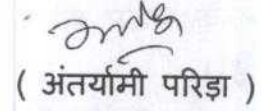 ( अंतर्यामी परिड़ा )